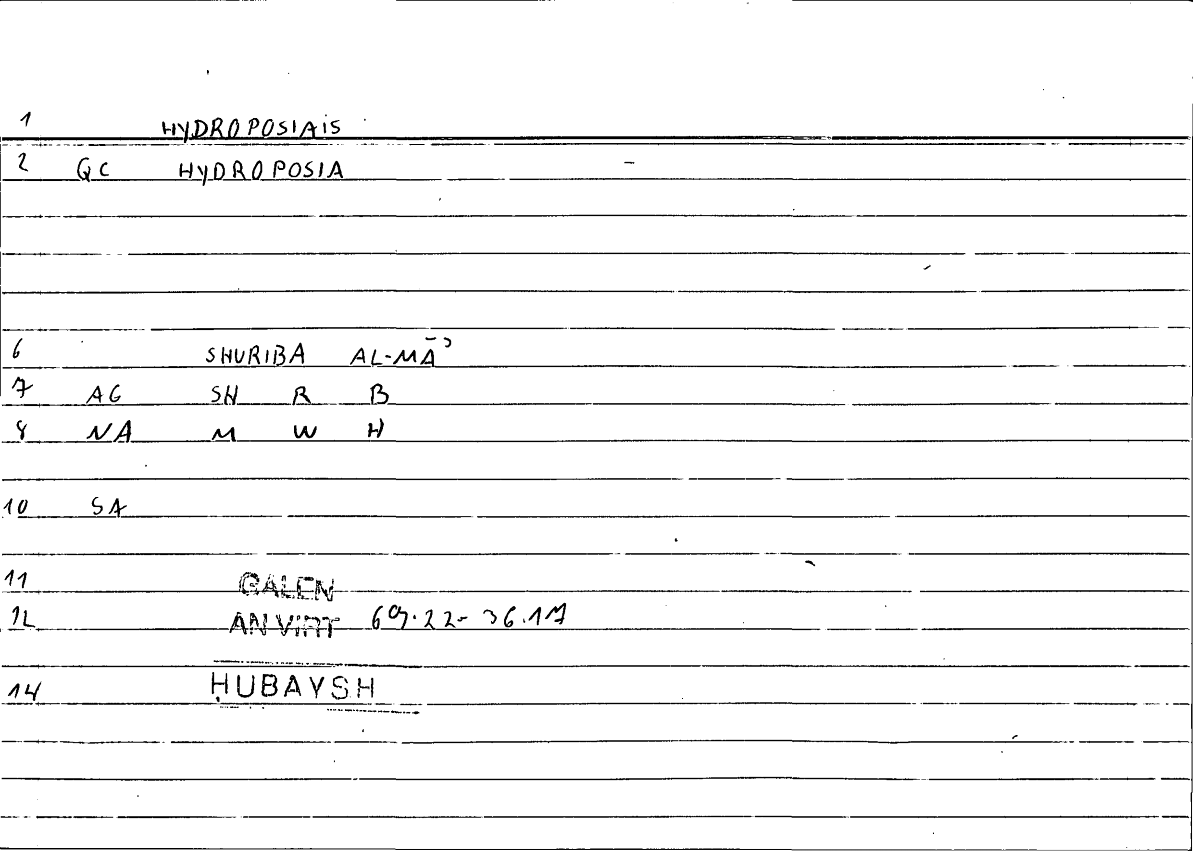 1 HYDROPOSIAIS
2 GC HYDROPOSIA -
6 SHURIBA AL-MĀʾ
7 AG SH R B
8 NA M W H
10 SA
11 GALEN
12 AN VIRT 69.22-36.17
14 ḤUBAYSH